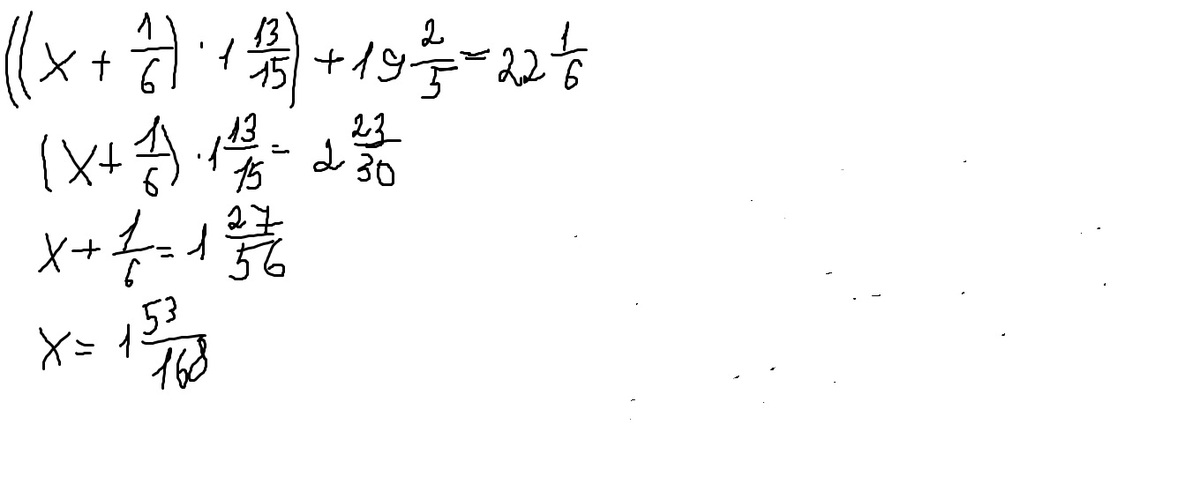 ((x + 1/6) · 1 13/15) + 19 2/5 = 22 1/6
(x + 1/6) · 1 13/15 = 2 23/30
x + 1/6 = 1 27/56
x = 1 53/168